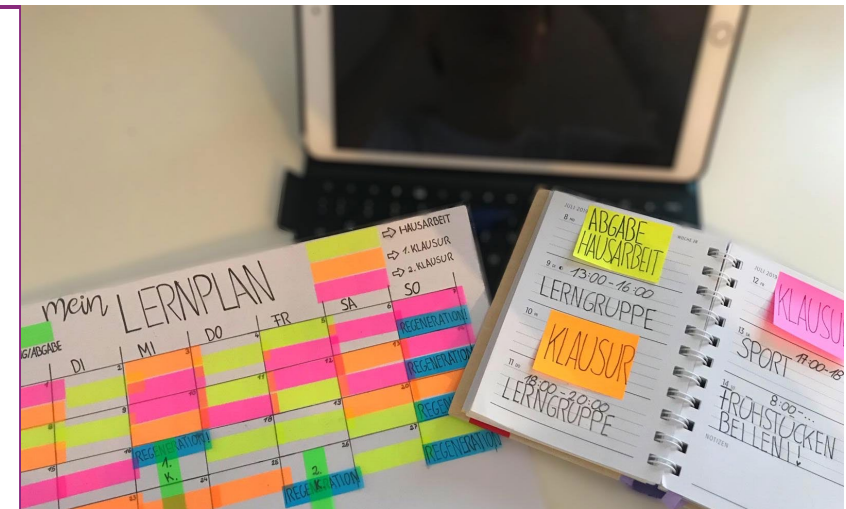 mein LERNPLAN
⇨ HAUSARBEIT
⇨ 1. KLAUSUR
⇨ 2. KLAUSUR
G/ABGABE
DI MI DO FR SA SO
REGENERATION!
REGENERATION!
REGEN
REGENERATION!
REGENERATION!
1.
K.
REGENERATION
2.
K.
JULI 2019
8
ABGABE
HAUSARBEIT
9
13:00-16:00
LERNGRUPPE
10
KLAUSUR
11
18:00-20:00
LERNGRUPPE
JULI 2019
12
KLAUSU
13
SPORT 17:00-18
14
8:00-...
FRÜHSTÜCKEN
BELLEN!
NOTIZEN